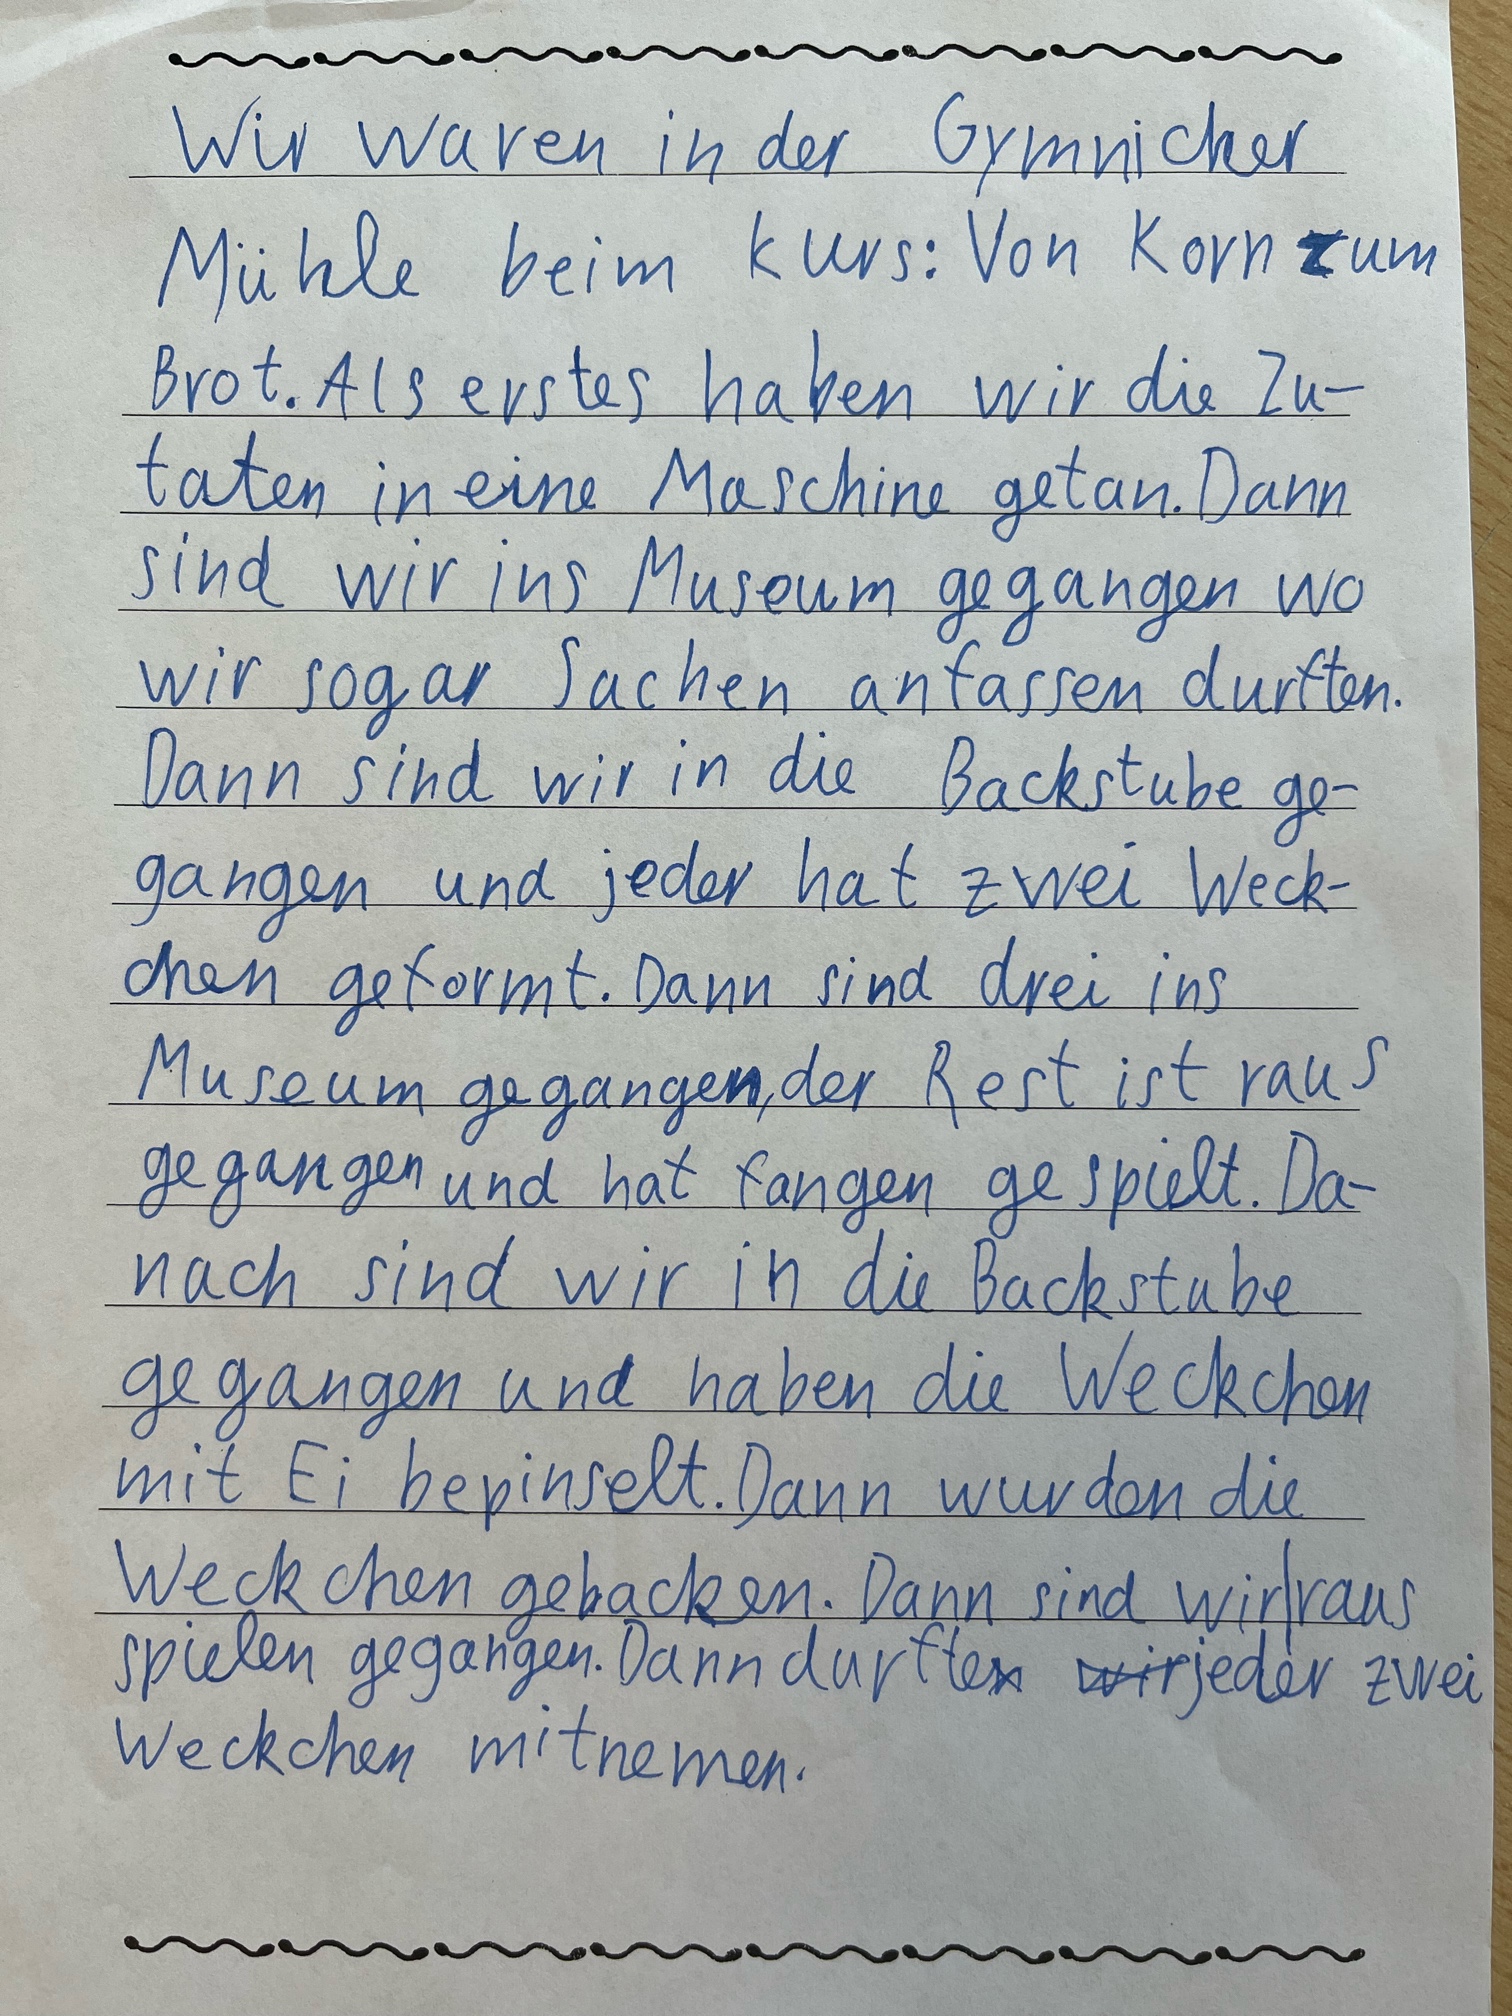 Wir waren in der Gymnicker
Mühle beim kurs: Von Korn zum
Brot. Als erstes haben wir die Zu-
taten in eine Maschine getan. Dann
sind wir ins Museum gegangen wo
wir sogar Sachen anfassen durften.
Dann sind wir in die Backstube ge-
gangen und jeder hat zwei Weck-
chen geformt. Dann sind drei ins
Museum gegangen, der Rest ist raus
gegangen und hat fangen gespielt. Da-
nach sind wir in die Backstube
gegangen und haben die Weckchen
mit Ei bepinselt. Dann wurden die
Weckchen gebacken. Dann sind wir raus
spielen gegangen. Dann durfte jeder zwei
Weckchen mitnemen.